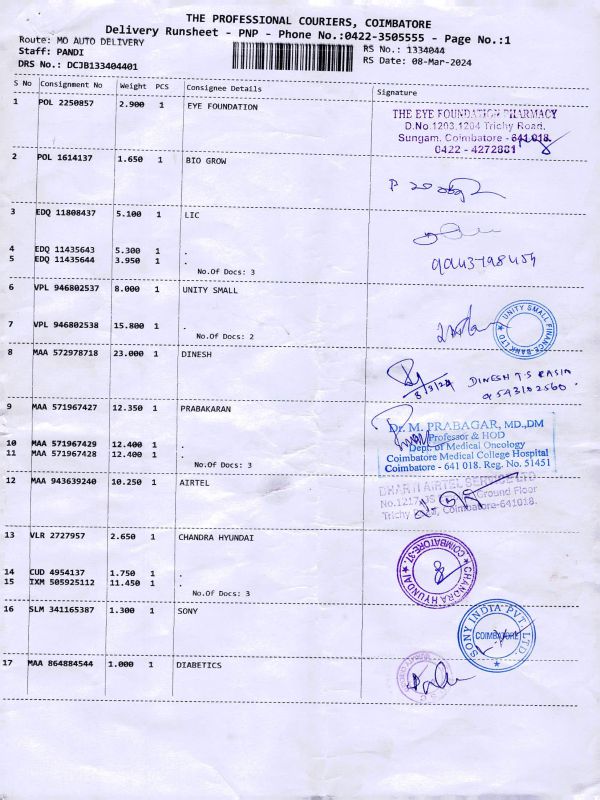 THE PROFESSIONAL COURIERS, COIMBATORE
Delivery Runsheet - PNP - Phone No.:0422-3505555 - Page No.:1
Route: MO AUTO DELIVERY
Staff: PANDI RS No.: 1334044
DRS No.: DCJB133404401 RS Date: 08-Mar-2024
S No Consignment No Weight PCS Consignee Details Signature
1 POL 2250857 2.900 1 EYE FOUNDATION
THE EYE FOUNDATION PHARMACY
D.No.1203,1204 Trichy Road,
Sungam, Coimbatore - 641 018.
0422 - 4272881
2 POL 1614137 1.650 1 BIO GROW
3 EDQ 11808437 5.100 1 LIC
4 EDQ 11435643 5.300 1 .
5 EDQ 11435644 3.950 1 .
No.Of Docs: 3
6 VPL 946802537 8.000 1 UNITY SMALL
UNITY SMALL FINANCE BANK LTD
7 VPL 946802538 15.800 1 .
No.Of Docs: 2
8 MAA 572978718 23.000 1 DINESH
8/3/24 DINESH T.S
9 MAA 571967427 12.350 1 PRABAKARAN
Dr. M. PRABAGAR, MD.,DM
Professor & HOD
Dept. of Medical Oncology
Coimbatore Medical College Hospital
Coimbatore - 641 018. Reg. No. 51451
10 MAA 571967429 12.400 1 .
11 MAA 571967428 12.400 1 .
No.Of Docs: 3
12 MAA 943639240 10.250 1 AIRTEL
BHARTI AIRTEL SERVICE LTD
Ground Floor
Trichy Road, Coimbatore-641018.
13 VLR 2727957 2.650 1 CHANDRA HYUNDAI
CHANDRA HYUNDAI COIMBATORE-37.
14 CUD 4954137 1.750 1 .
15 IXM 505925112 11.450 1 .
No.Of Docs: 3
16 SLM 341165387 1.300 1 SONY
SONY INDIA PVT. LTD.
COIMBATORE
17 MAA 864884544 1.000 1 DIABETICS